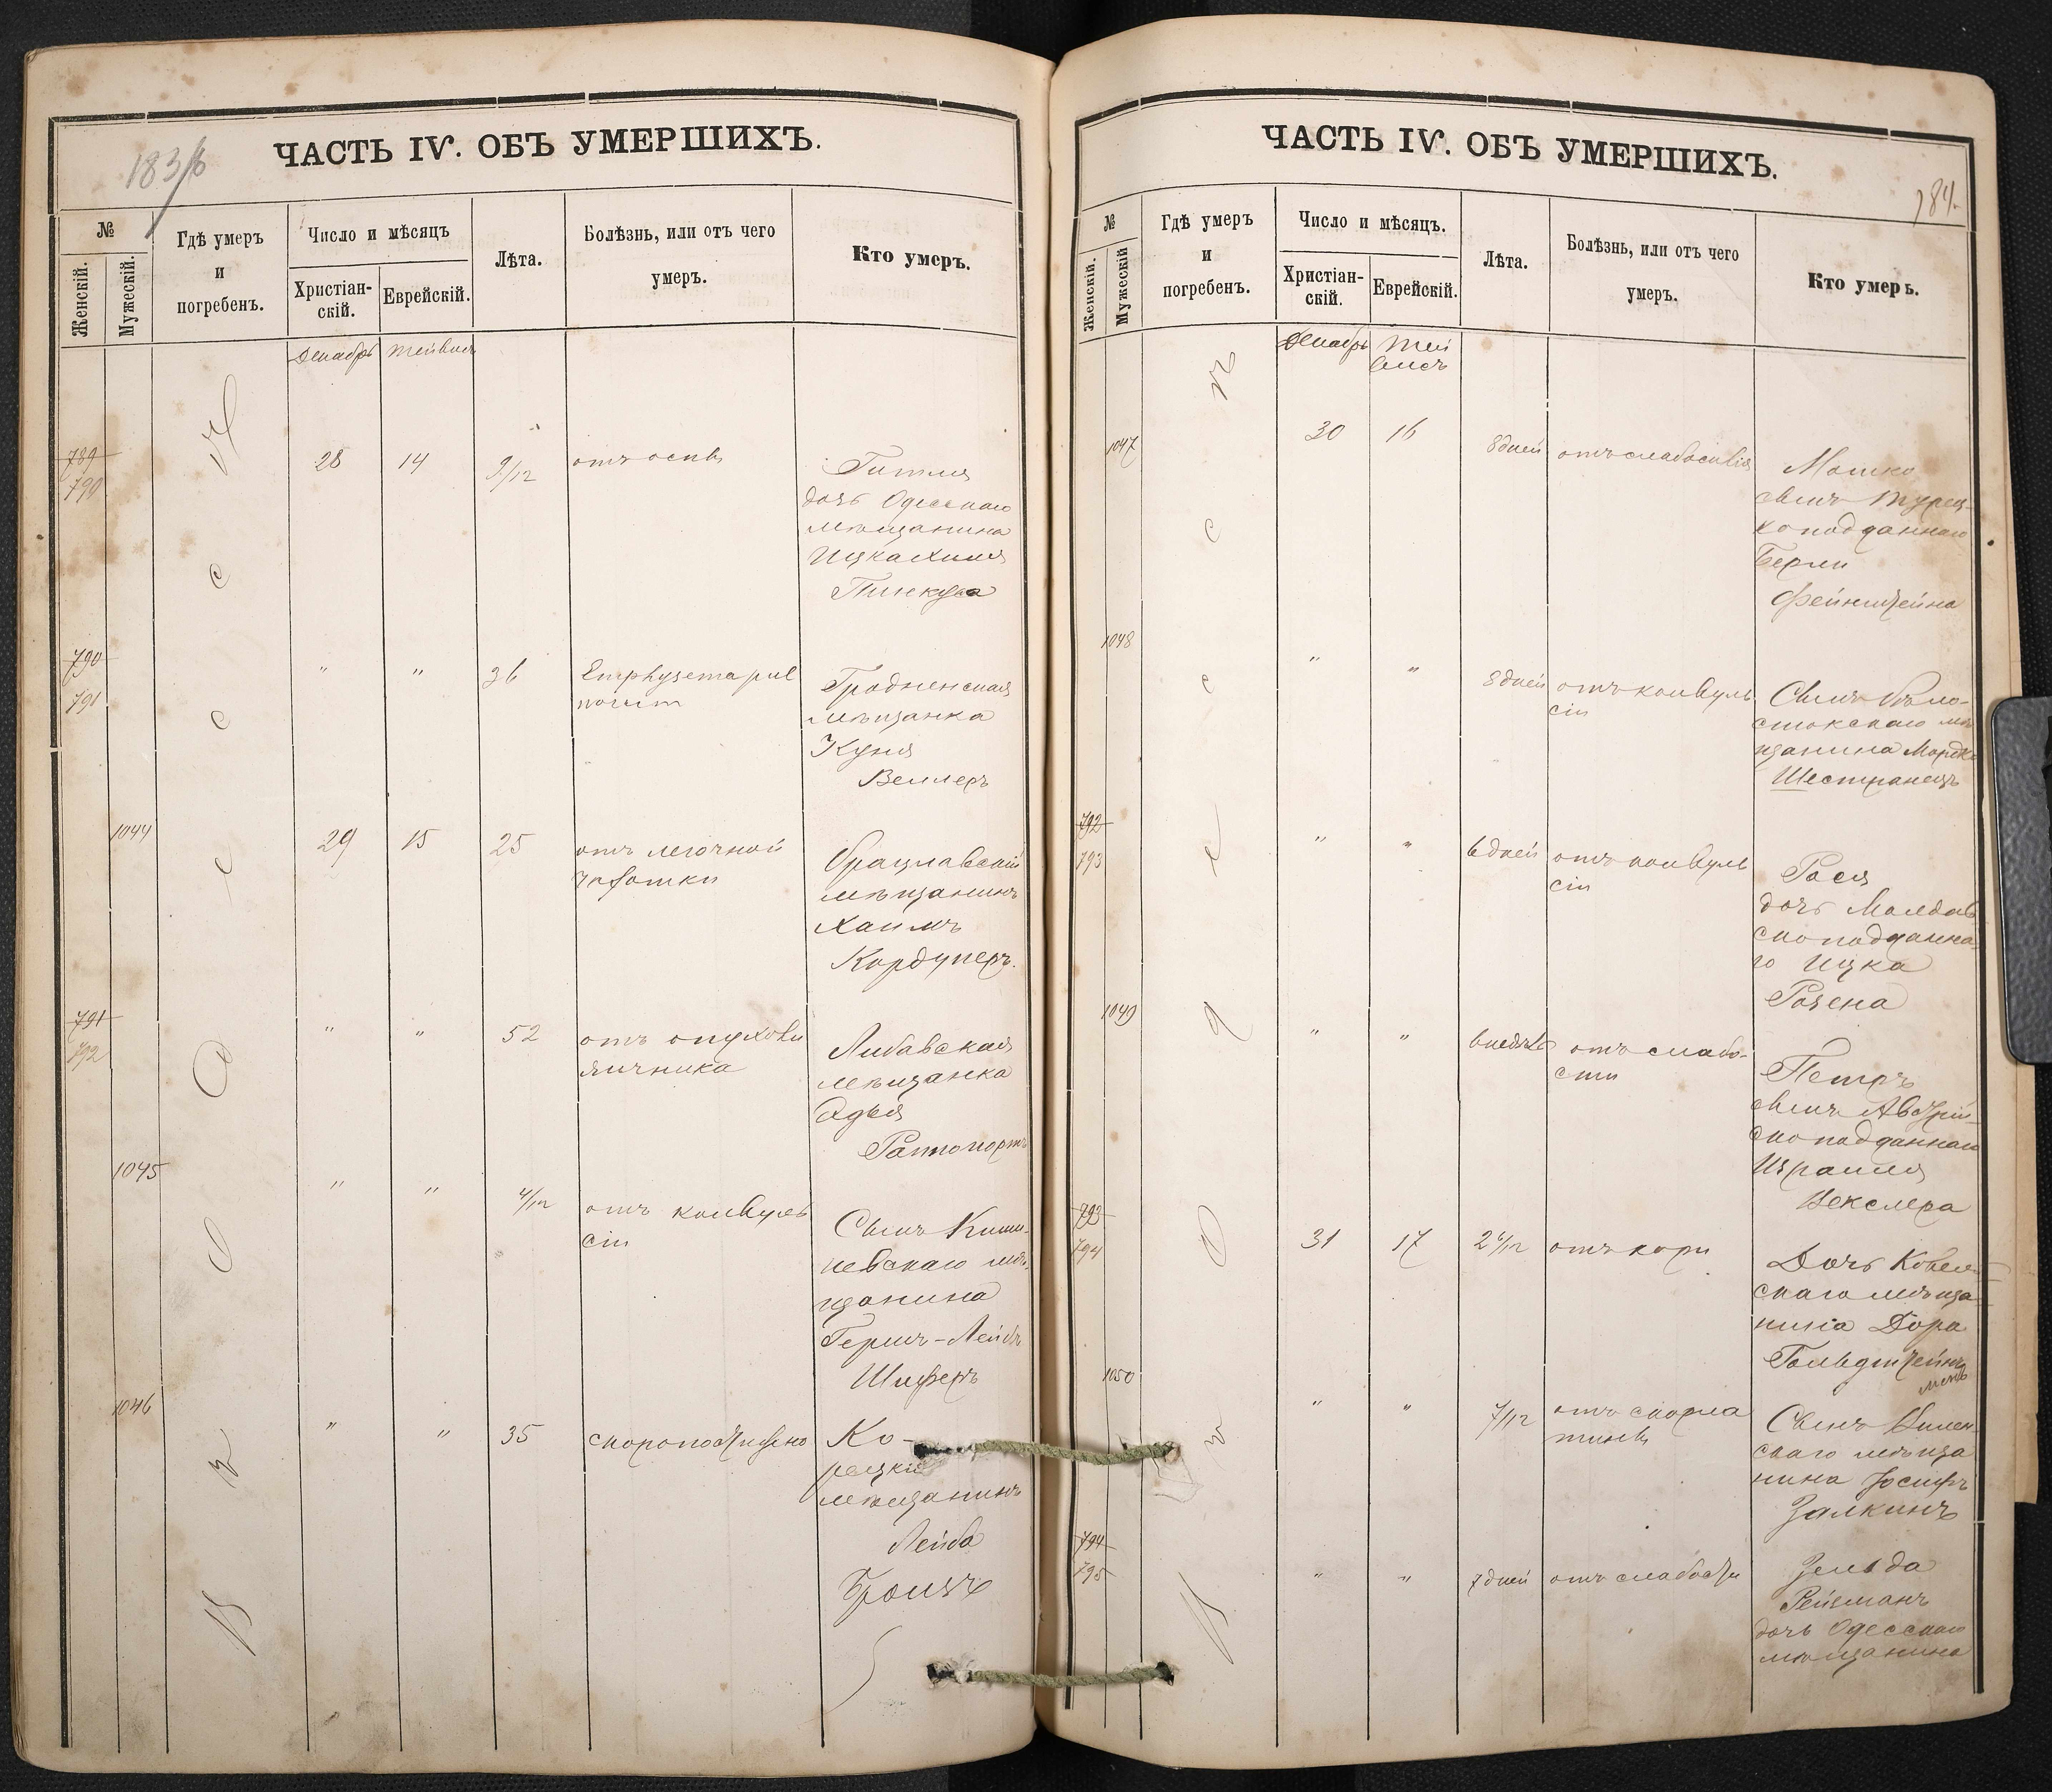 ЧАСТЬ IV. ОБЪ УМЕРШИХЪ.
№
Женскій.
Мужескій.
Гдѣ умеръ
и
погребенъ.
Число и мѣсяцъ
Христіан-
скій.
Еврейскій.
Лѣта.
Болѣзнь, или отъ чего
умеръ.
Кто умеръ.
Декабрь Тейвисъ
789
790
28 14 9/12 отъ оспы
Гитля
дочь Одесскаго
мѣщанина
Ицка Хаима
Пинкуса
790
791
" " 36 Emphysema pul
Гродненская
мѣщанка
Куня
Веллеръ
1044
29 15 25 отъ легочной
чахотки
брацлавскій
мѣщанинъ
Хаимъ
Кордунеръ.
791
792
" " 52 отъ опухоли
яичника
Либавская
мѣщанка
Адея
Раппопортъ
1045
" " 4/12 отъ конвуль
сіи
Сынъ Киши-
невскаго мѣ-
щанина
Гершъ-Лейбъ
Шиферъ
1046
" " 35 скоропостижно
Ко-
рецкій
мѣщанинъ
Лейба
Троизъ
О д е с с а
ЧАСТЬ IV. ОБЪ УМЕРШИХЪ.
184.
№
Женскій.
Мужескій
Гдѣ умеръ
и
погребенъ.
Число и мѣсяцъ.
Христіан-
скій.
Еврейскій.
Лѣта.
Болѣзнь, или отъ чего
умеръ.
Кто умеръ.
Декабрь Тей
висъ
1047
30 16 8 дней отъ слабосилія
Мошко
сынъ Турец-
ко подданнаго
Берли
Фейнштейна
1048
" " 8 дней отъ конвуль
сіи
Сынъ бѣло-
стокскаго мѣ
щанина Мордко
Шестранецъ
792
793
" " 6 дней отъ конвуль
сіи
Рося
дочь Молдав
скоподданна
го Ицка
Розена
1049
" " 6 недѣль отъ слабо-
сти
Петръ
сынъ Австрій-
скоподданнаго
Израиля
Векслера
793
794
31 17 2 6/12 отъ кори
Дочь Ковель
скаго мѣща
нина Дора
Гольдштейнъ
1050
" " 7/12 отъ скарла
тины
Сынъ Вилен
скаго мѣща
нина Іосифъ
Залкинъ
794
795
" " 7 дней отъ слабости
Зельда
Рейзманъ
дочь Одесскаго
мѣщанина